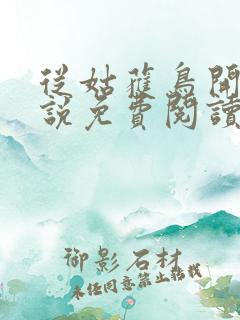 從姑獲鳥開
說免費閱讀
御影石材
未经同意禁止转载